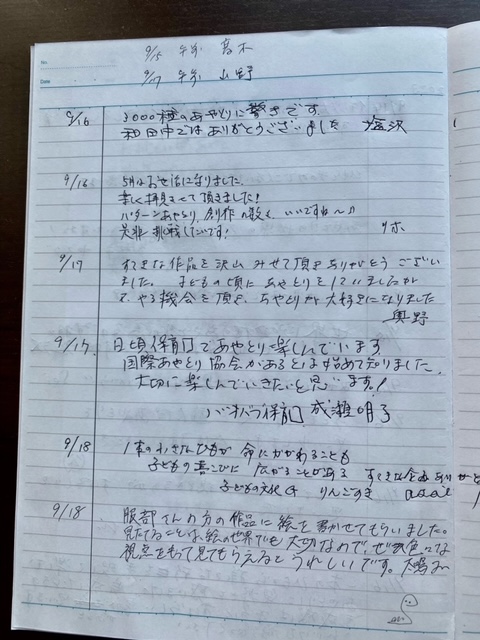 No.
Date
9/15 午前 高木
9/17 午前 山野
9/16 3000種のあやとりに驚きです。
和田中ではありがとうございました 塩沢
9/16 5月はお世話になりました。
楽しく拝見させて頂きました!
パターンあやとり、創作の数々、いいですね〜♪
是非挑戦したいです! リホ
9/17 すてきな作品を沢山みせて頂きありがとうござい
ました。子どもの頃にあやとりをしていましたが
やる機会を頂き、あやとりが大好きになりました
奥野
9/17 日頃保育であやとり楽しんでいます
国際あやとり協会があるとは始めて知りました。
大切に楽しんでいきたいと思います!
保育 成瀬明子
9/18 1本の小さなひもが命にかかわることも
子どもの喜びに広がることがある すてきな企画ありがと
子どもの文化 りんごすき
9/18 服部さんの分の作品に絵を書かせてもらいました。
見たてることは、絵の世界でも大切なので、ぜひ色々な
視点をもって見てもらえるとうれしいです。